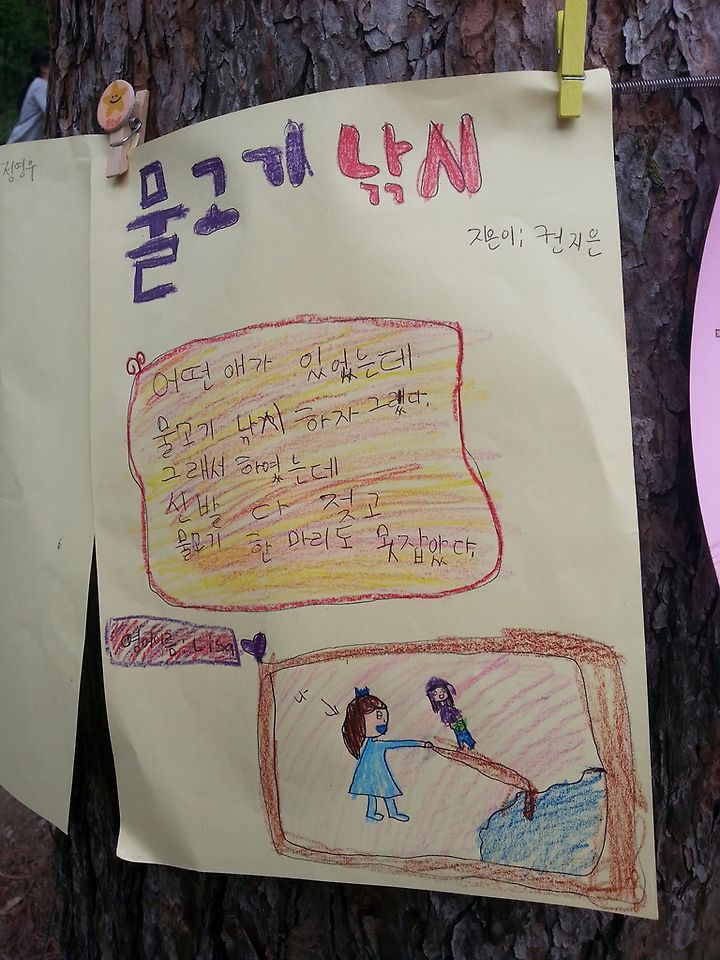 정영우
물고기 낚시
지은이; 권지은
어떤 애가 있었는데
물고기 낚시 하자 그랬다.
그래서 하였는데
신발 다 젖고
물고기 한 마리도 못잡았다.
영어이름: Lisa
나